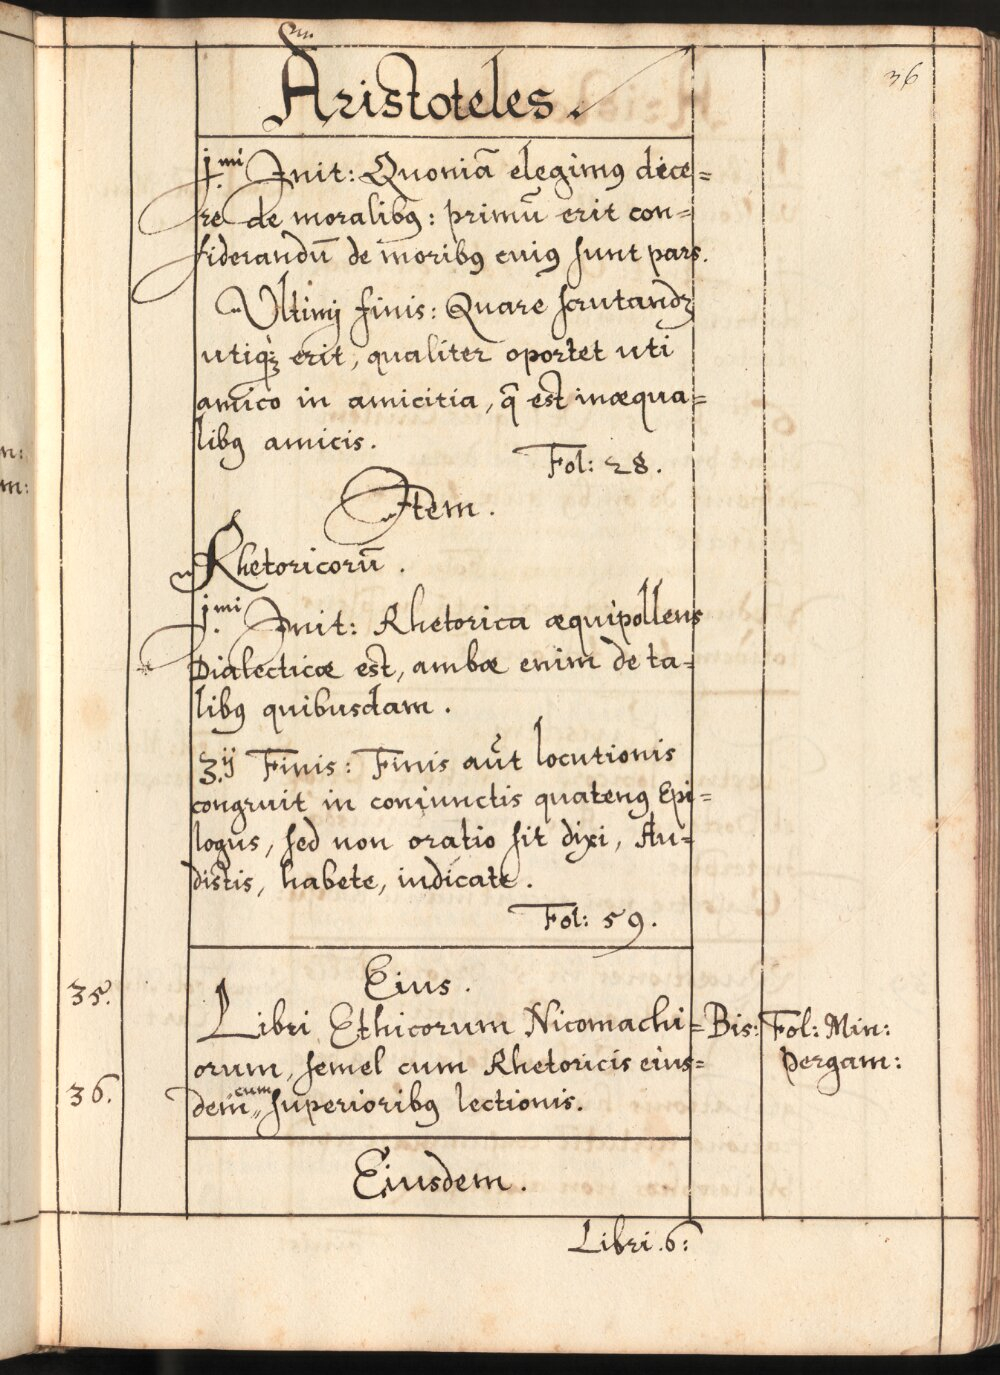 36
Aristoteles.
j.mi Init: Quoniā elegimꝰ dice=
re de moralibꝰ: primū erit con=
siderandū de moribꝰ cuiꝰ sunt pars.
Ultimi finis: Quare scrutandꝫ
utiqꝫ erit, qualiter oportet uti
amico in amicitia, q̄ est inæqua=
libꝰ amicis.
Fol: 28.
Item.
Rhetoricorū.
j.mi Init: Rhetorica æquipollens
Dialecticæ est, ambæ enim de ta=
libꝰ quibusdam.
3.ij Finis: Finis aūt locutionis
congruit in coniunctis quatenꝰ Epi=
logus, sed non oratio sit dixi, Au=
distis, habete, iudicate.
Fol: 59.
Eius.
35. Libri Ethicorum Nicomachi= Bis: Fol: Min:
orum, semel cum Rhetoricis eius= pergam:
36. dem cum superioribꝰ lectionis.
Eiusdem.
Libri.6:
n:
m: